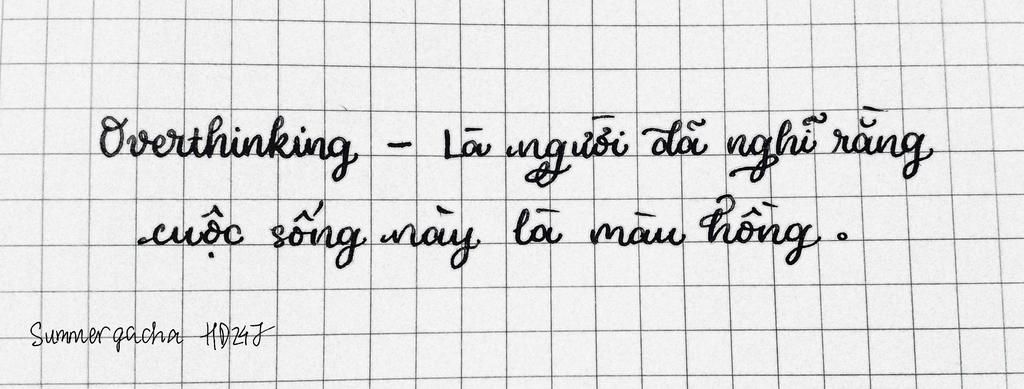 Overthinking - Là người đã nghĩ rằng
cuộc sống này là màu hồng.
Summergacha HD247